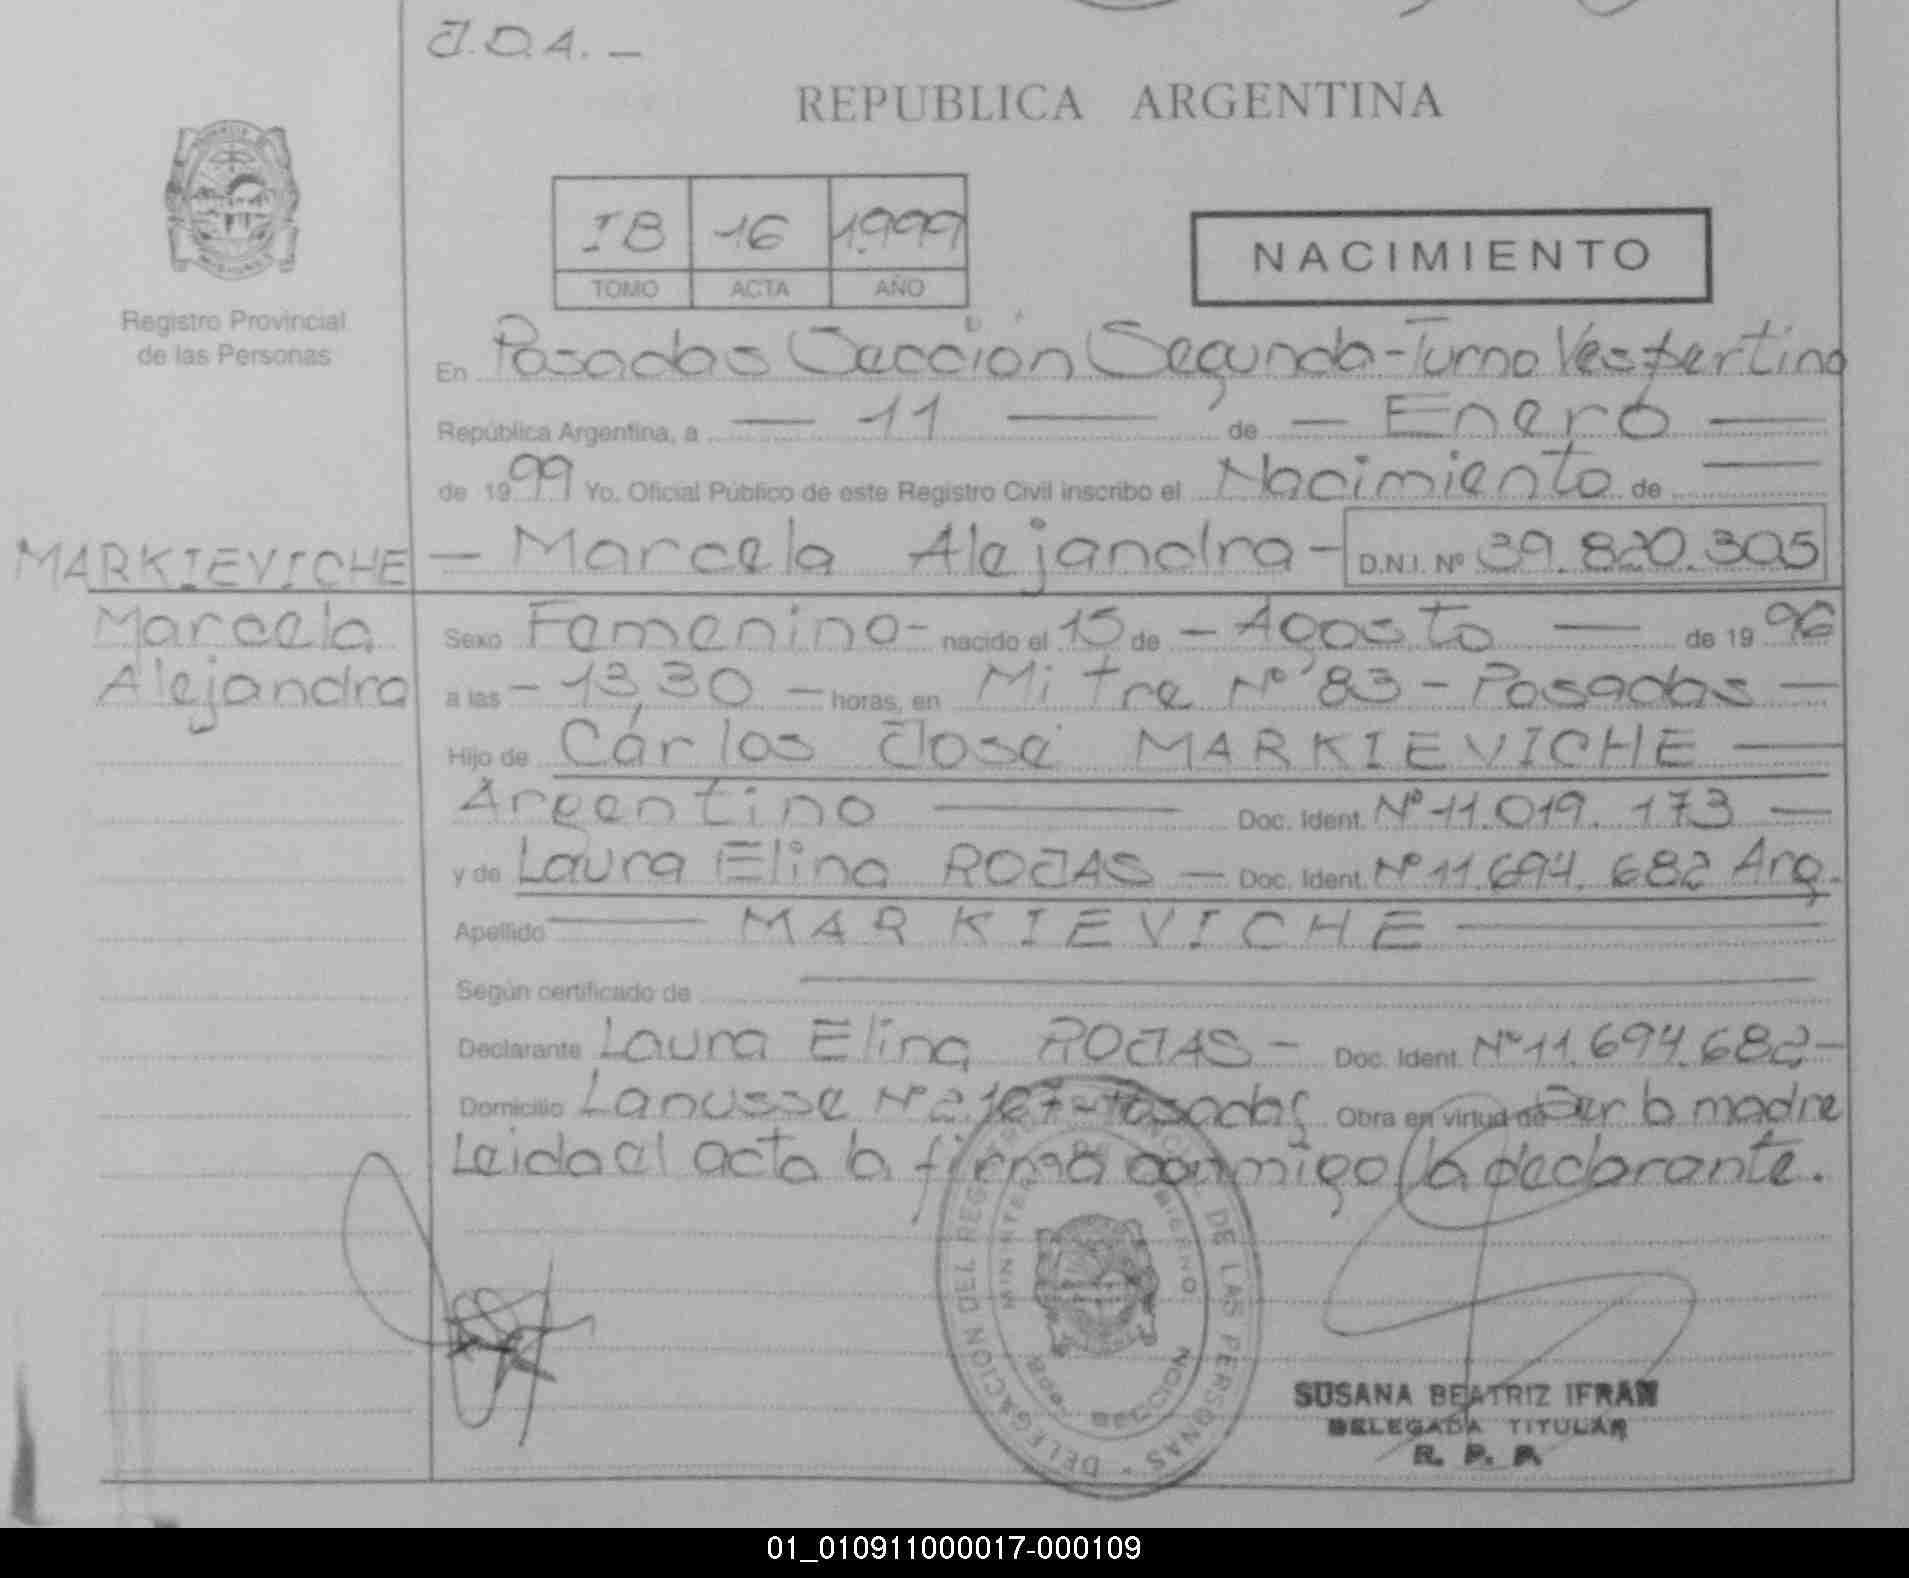 J.D.A. —
REPUBLICA ARGENTINA
IB 16 1.999
TOMO ACTA AÑO
NACIMIENTO
Registro Provincial
de las Personas
En Posadas Sección Segunda - Turno Vespertino
República Argentina, a — 11 — de — Enero —
de 1999 Yo, Oficial Público de este Registro Civil inscribo el Nacimiento de —
MARKIEVICHE
Marcela
Alejandra
— Marcela Alejandra — D.N.I. Nº 39.820.305
Sexo Femenino - nacido el 15 de — Agosto — de 1996
a las — 13,30 — horas, en Mitre Nº 83 - Posadas —
Hijo de Cárlos José MARKIEVICHE —
Argentino — Doc. Ident. Nº 11.019.173 —
y de Laura Elina ROJAS — Doc. Ident. Nº 11.694.682 Arg.
Apellido — MARKIEVICHE —
Según certificado de —
Declarante Laura Elina ROJAS — Doc. Ident. Nº 11.694.682 —
Domicilio Lanusse Nº 2.167 - Posadas Obra en virtud de Ser la madre
Leida el acta la firma conmigo la declarante.
DELEGACION DEL REGISTRO PROVINCIAL DE LAS PERSONAS
SECCION
SUSANA BEATRIZ IFRAN
DELEGADA TITULAR
R. P. P.
01_010911000017-000109